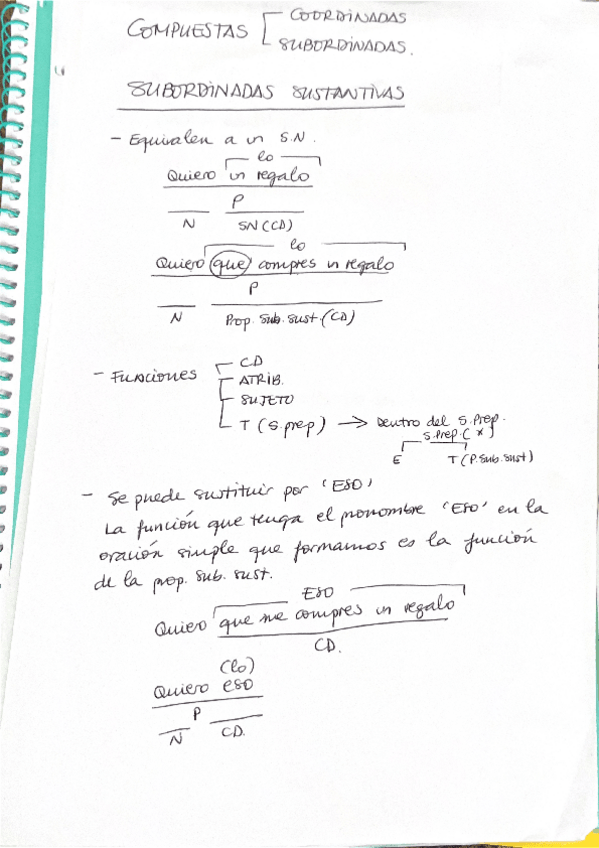 COMPUESTAS COORDINADAS
SUBORDINADAS.
SUBORDINADAS SUSTANTIVAS
- Equivalen a un S.N.
lo
Quiero un regalo
P
N SN (CD)
lo
Quiero que compres un regalo
P
N Prop. Sub. Sust. (CD)
- Funciones CD
ATRIB.
SUJETO
T (S. prep) → Dentro del S. Prep.
S. Prep. (*)
E T (P. Sub. Sust)
- Se puede sustituir por 'ESO'
La función que tenga el pronombre 'ESO' en la
oración simple que formamos es la función
de la prop. sub. sust.
ESO
Quiero que me compres un regalo
CD.
(lo)
Quiero eso
P
N CD.